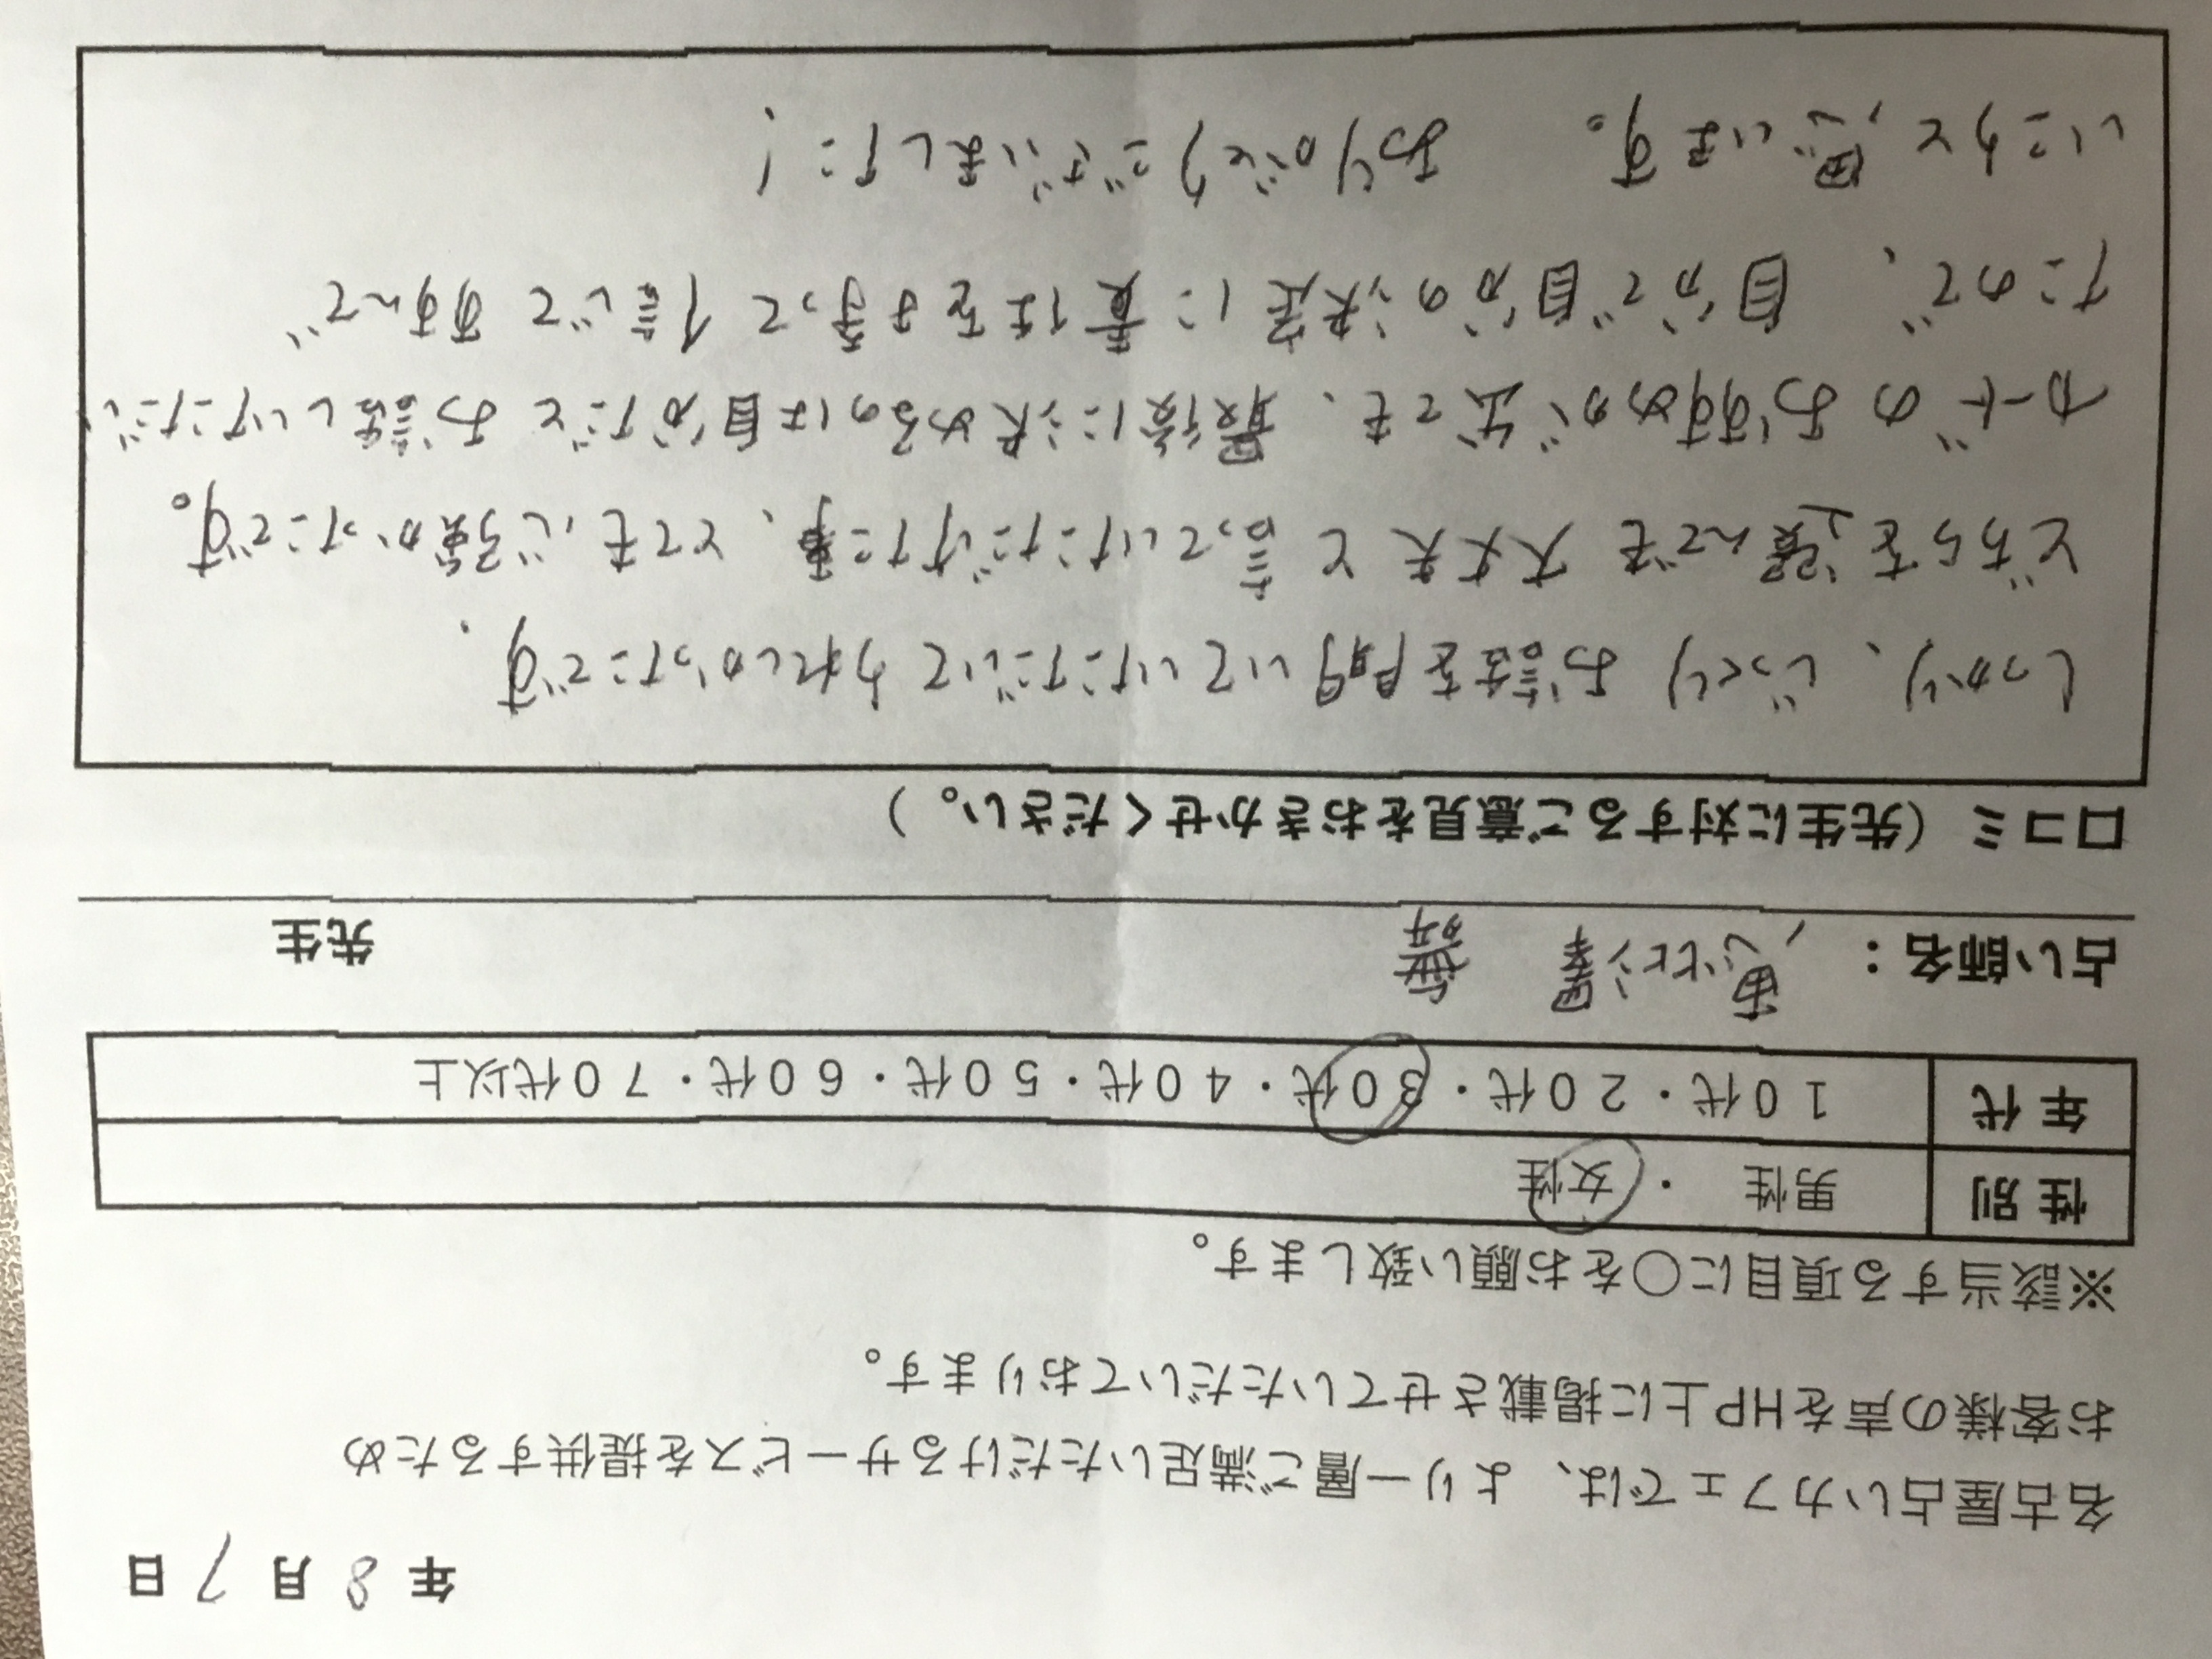 年 8 月 7 日
名古屋占いカフェでは、より一層ご満足いただけるサービスを提供するため
お客様の声をHP上に掲載させていただいております。
※該当する項目に〇をお願い致します。
性別 男性 ・ 女性
年代 10代・20代・30代・40代・50代・60代・70代以上
占い師名： 先生
口コミ（先生に対するご意見をおきかせください。）
しっかり、じっくり お話を聞いていただいて うれしかったです
どちらを選んでも 大丈夫 と 言っていただけた事、とても心強かったです。
カードの おすすめが出ても、最後に決めるのは自分だと お話しいただい
たので、自分で自分の決定に責任を持って 信じて すすんで
いこうと思います。 ありがとうございました！